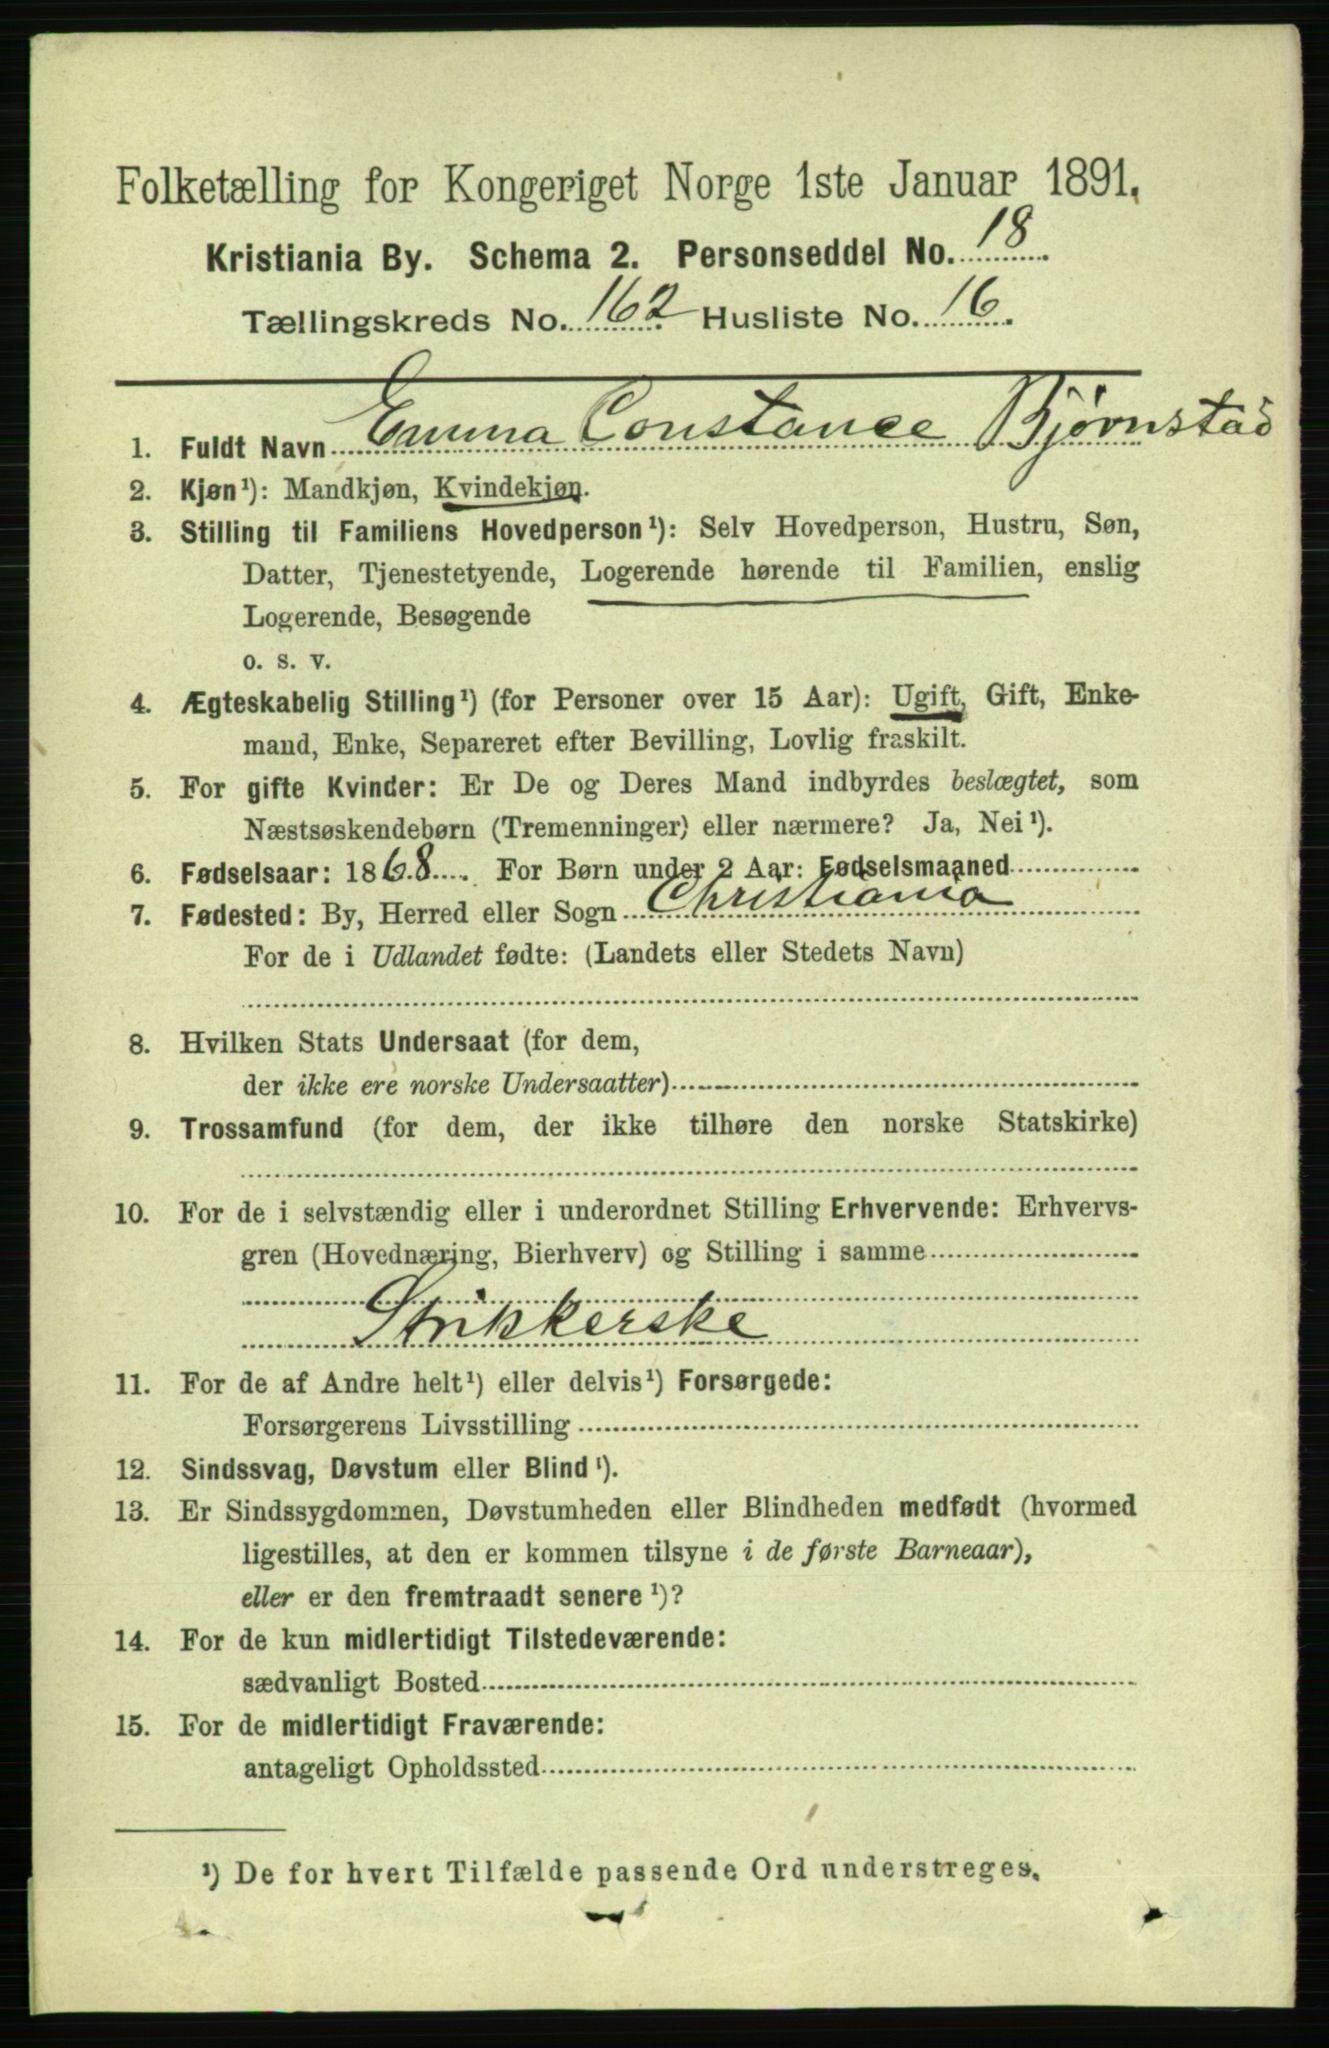 Folketælling for Kongeriget Norge 1ste Januar 1891.
Kristiania By. Schema 2. Personseddel No. 18
Tællingskreds No. 162 Husliste No. 16.
1. Fuldt Navn Emma Constance Bjørnstad
2. Kjøn¹): Mandkjøn, Kvindekjøn.
3. Stilling til Familiens Hovedperson¹): Selv Hovedperson, Hustru, Søn,
Datter, Tjenestetyende, Logerende hørende til Familien, enslig
Logerende, Besøgende
o. s. v.
4. Ægteskabelig Stilling¹) (for Personer over 15 Aar): Ugift, Gift, Enke-
mand, Enke, Separeret efter Bevilling, Lovlig fraskilt.
5. For gifte Kvinder: Er De og Deres Mand indbyrdes beslægtet, som
Næstsøskendebørn (Tremenninger) eller nærmere? Ja, Nei¹).
6. Fødselsaar: 1868. For Børn under 2 Aar: Fødselsmaaned
7. Fødested: By, Herred eller Sogn Christiania
For de i Udlandet fødte: (Landets eller Stedets Navn)
8. Hvilken Stats Undersaat (for dem,
der ikke ere norske Undersaatter)
9. Trossamfund (for dem, der ikke tilhøre den norske Statskirke)
10. For de i selvstændig eller i underordnet Stilling Erhvervende: Erhvervs-
gren (Hovednæring, Bierhverv) og Stilling i samme
Strikkerske
11. For de af Andre helt¹) eller delvis¹) Forsørgede:
Forsørgerens Livsstilling
12. Sindssvag, Døvstum eller Blind¹).
13. Er Sindssygdommen, Døvstumheden eller Blindheden medfødt (hvormed
ligestilles, at den er kommen tilsyne i de første Barneaar),
eller er den fremtraadt senere¹)?
14. For de kun midlertidigt Tilstedeværende:
sædvanligt Bosted
15. For de midlertidigt Fraværende:
antageligt Opholdssted
¹) De for hvert Tilfælde passende Ord understreges.